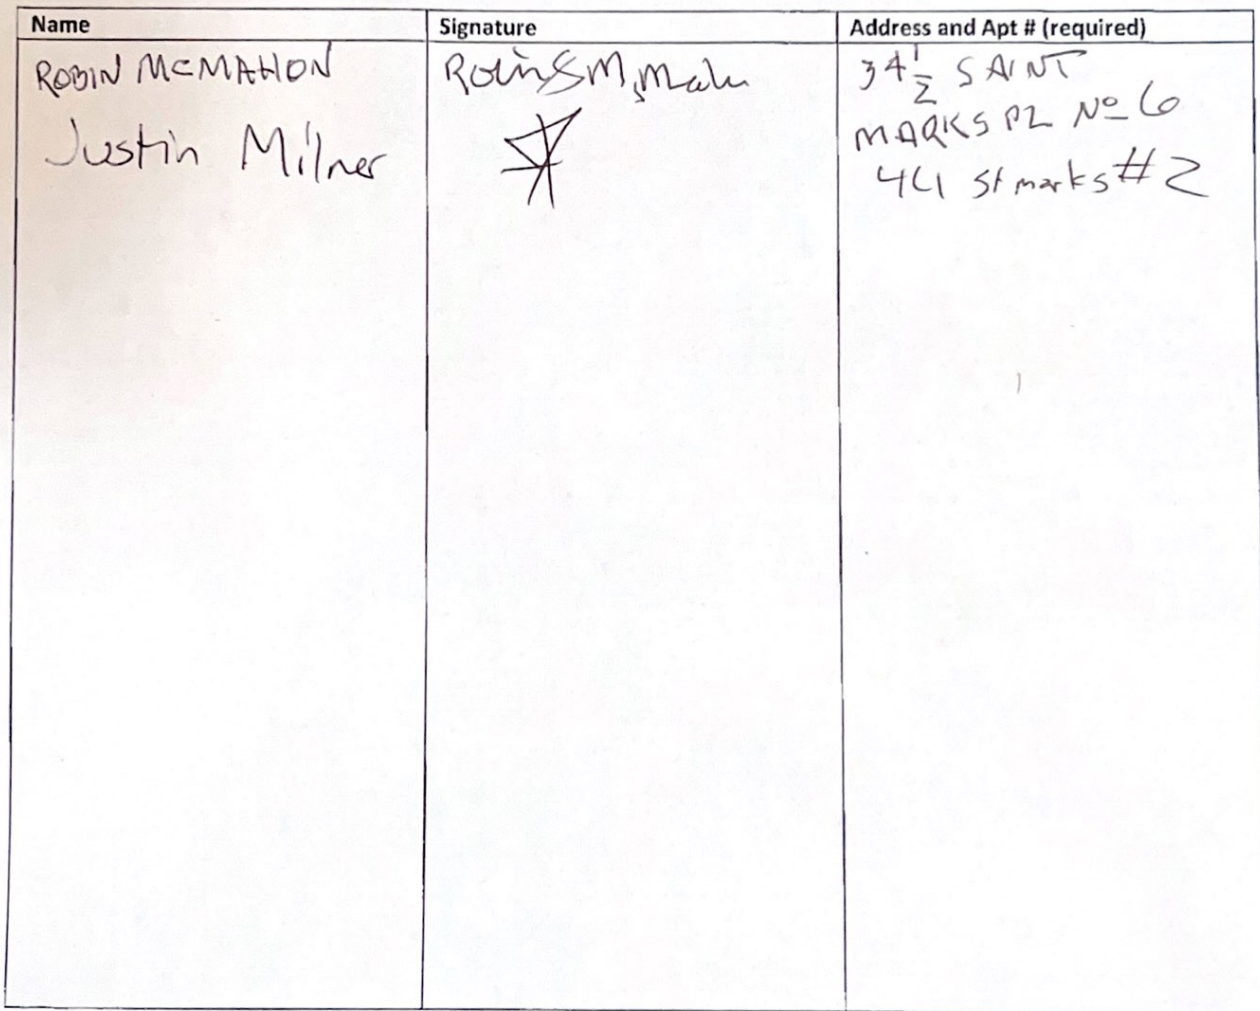 Name Signature Address and Apt # (required)
ROBIN MCMAHON 34 1/2 SAINT
MARKS PL Nº 6
Justin Milner
St marks #2